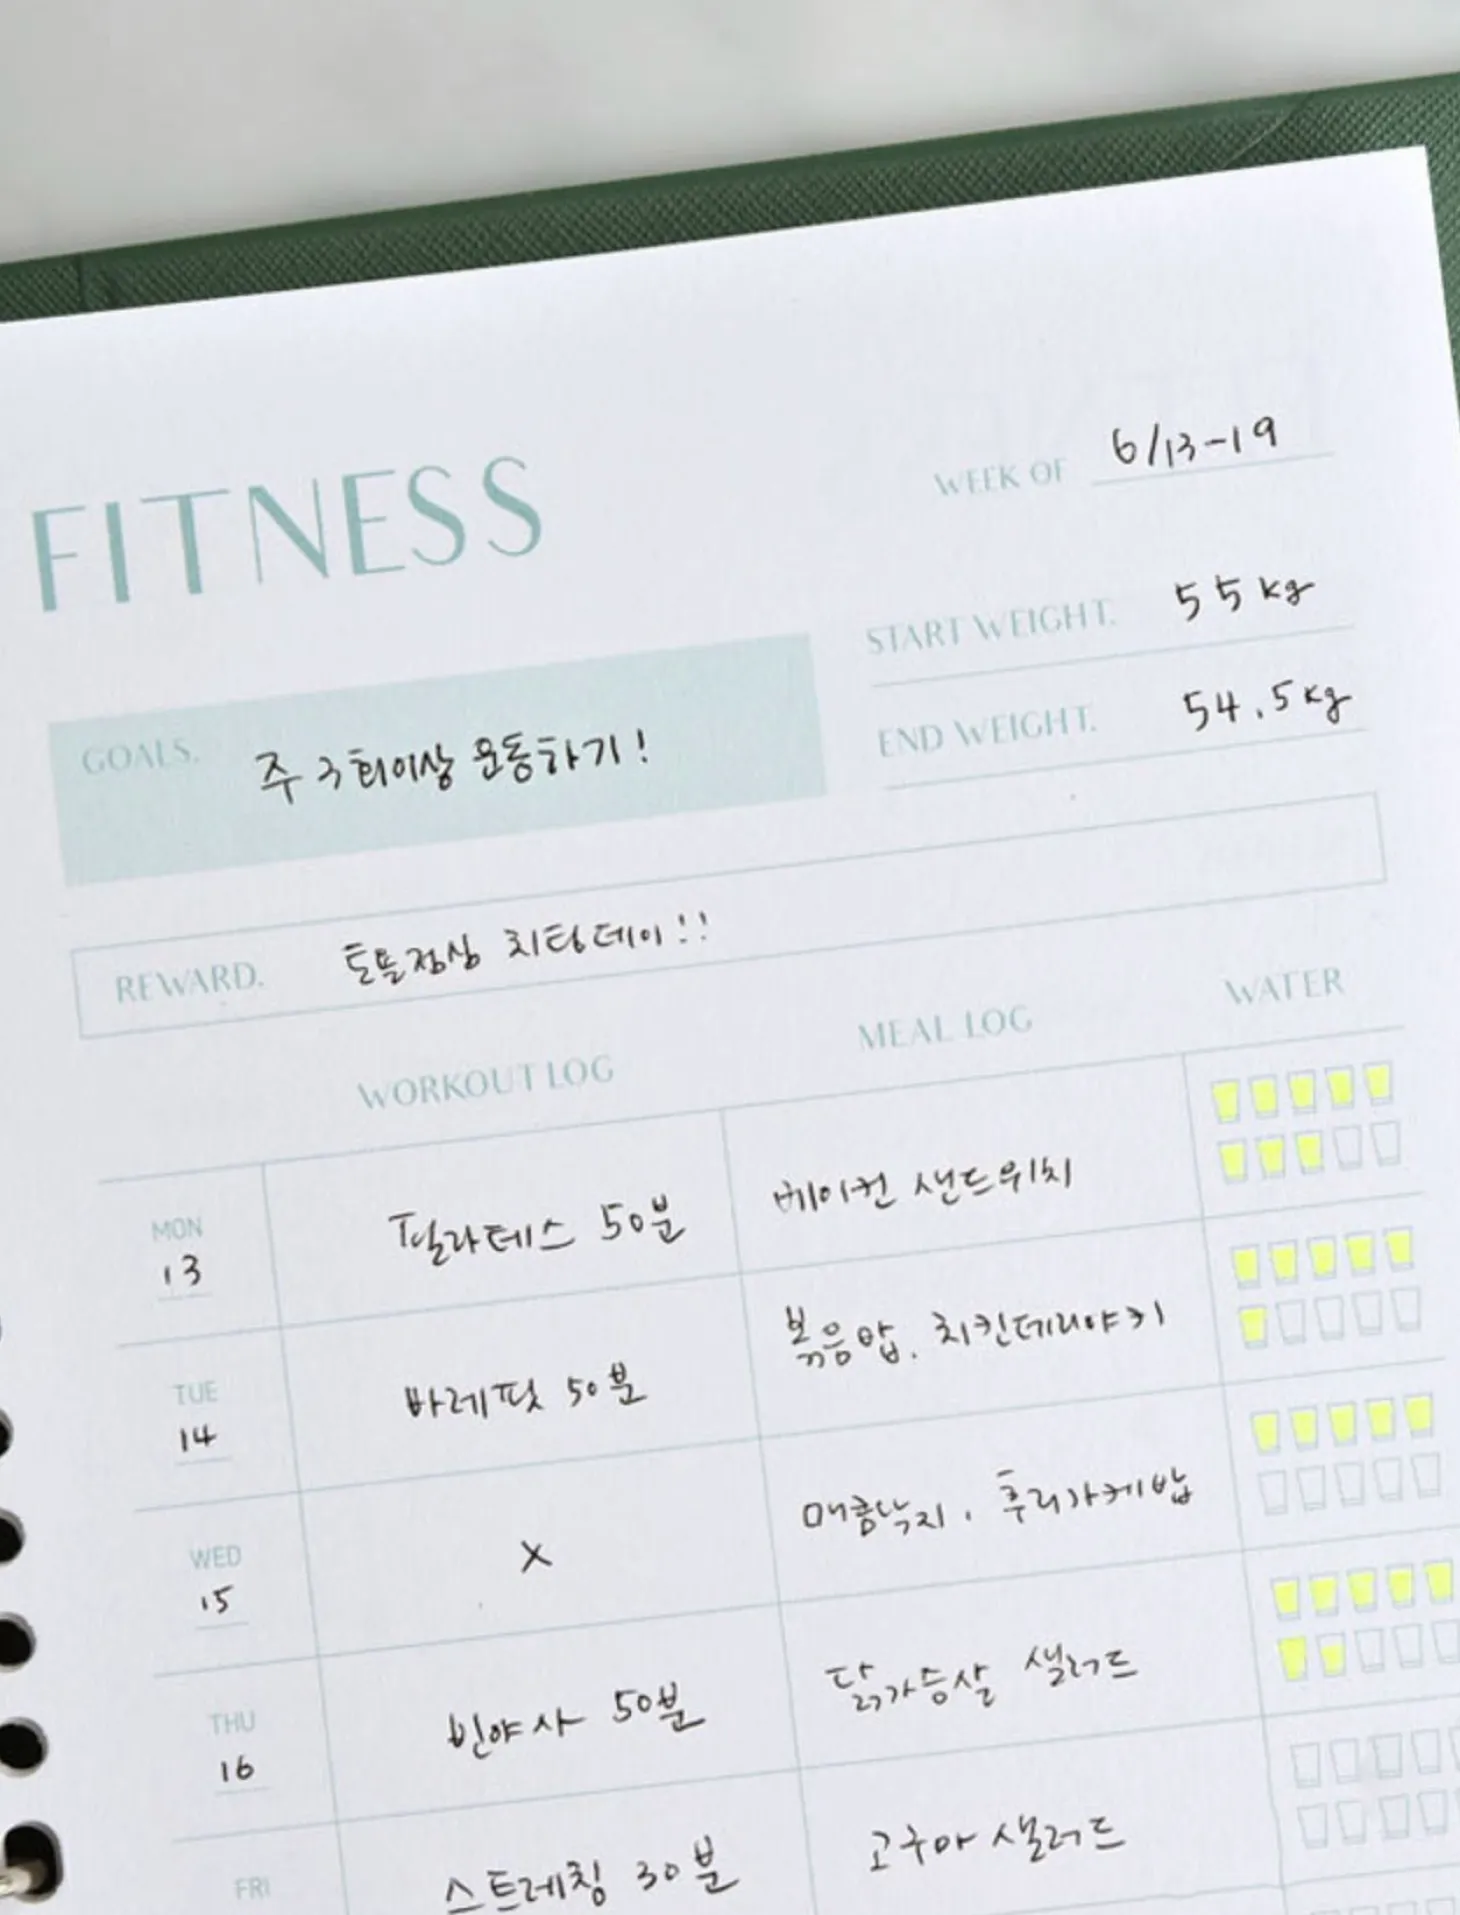 FITNESS
WEEK OF 6/13-19
START WEIGHT. 55kg
END WEIGHT. 54.5kg
GOALS. 주 3회이상 운동하기!
REWARD. 토욜점심 치팅데이!!
WORKOUT LOG MEAL LOG WATER
MON 13 필라테스 50분 베이컨 샌드위치
TUE 14 바레핏 50분 볶음밥. 치킨데리야키
WED 15 X 매콤낙지. 후리가케밥
THU 16 빈야사 50분 닭가슴살 샐러드
FRI 스트레칭 30분 고구마 샐러드